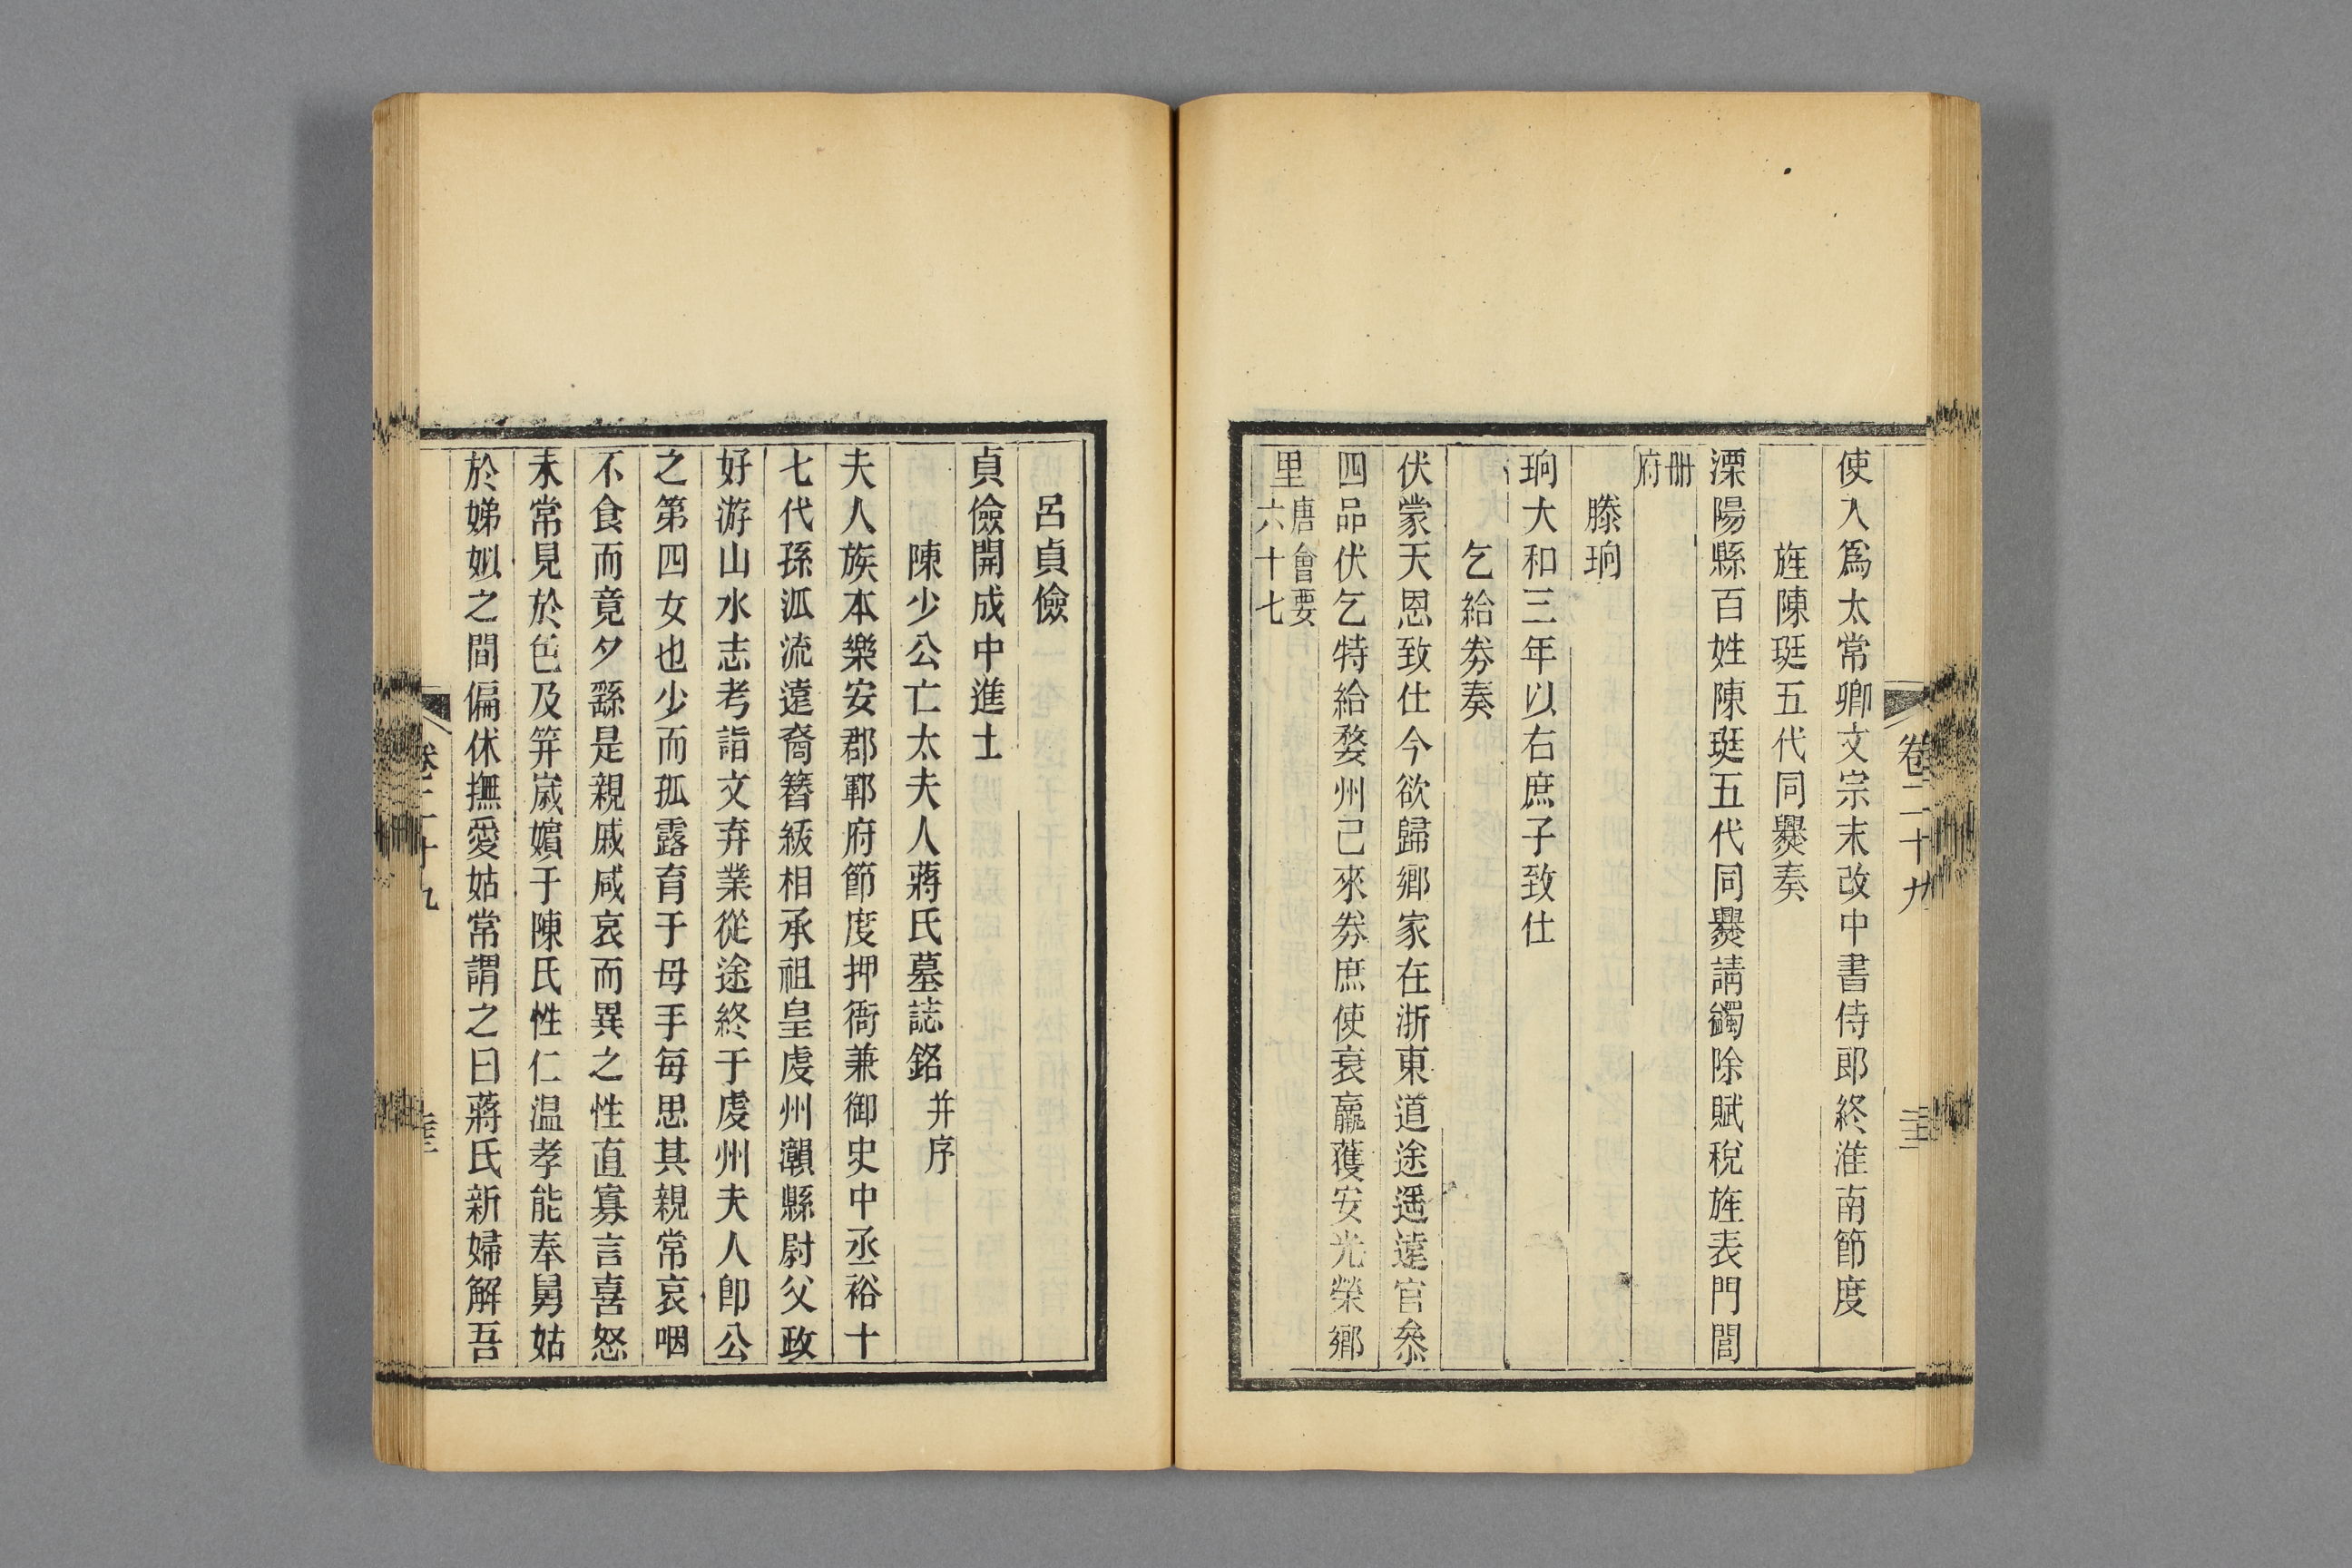 使入爲太常卿文宗末改中書侍郎終淮南節度
旌陳珽五代同爨奏
溧陽縣百姓陳珽五代同爨請蠲除賦稅旌表門閭
册府
滕珦
珦大和三年以右庶子致仕
乞給劵奏
伏蒙天恩致仕今欲歸鄉家在浙東道途遥遠官叅
四品伏乞特給婺州已來劵庶使衰羸獲安光榮鄉
里唐會要六十七
卷二十九
呂貞儉
貞儉開成中進士
陳少公亡太夫人蔣氏墓誌銘并序
夫人族本樂安郡鄆府節度押衙兼御史中丞裕十
七代孫泒流遠裔簪紱相承祖皇虔州瀷縣尉父政
好游山水志考詣文弃業從途終于虔州夫人卽公
之第四女也少而孤露育于母手每思其親常哀咽
不食而竟夕繇是親戚咸哀而異之性直寡言喜怒
未常見於色及笄嵗嬪于陳氏性仁温孝能奉舅姑
於娣姒之間偏休撫愛姑常謂之曰蔣氏新婦解吾